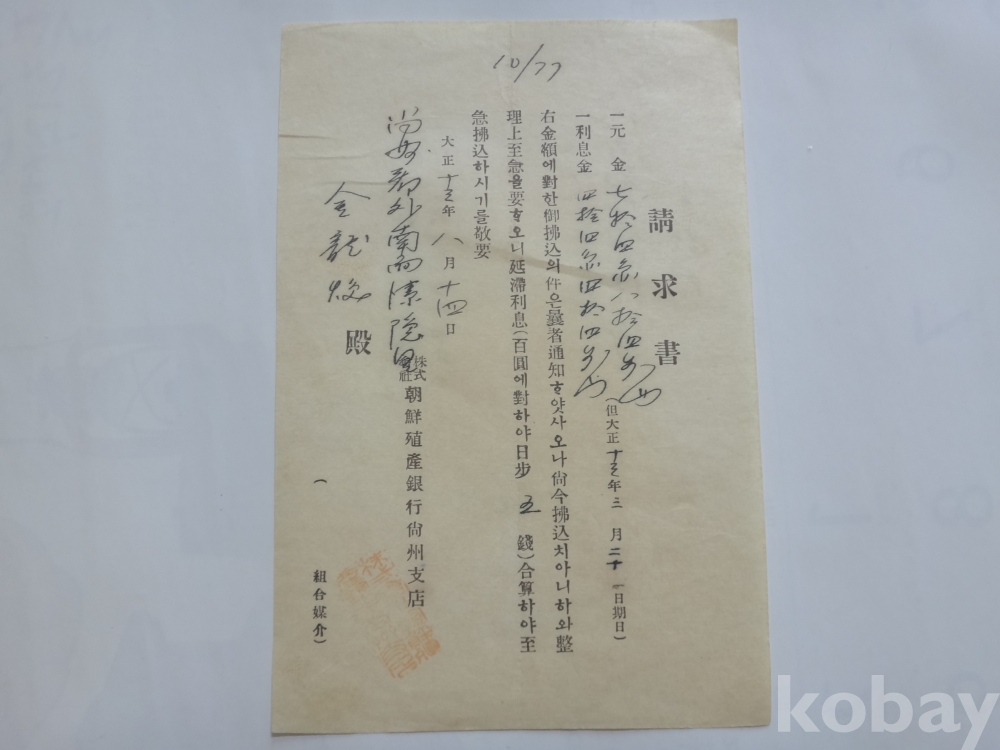 10/77
請求書
一元 金 七拾四円八拾四戔也
一利息金 四拾四円四拾四戔也 (但大正十三年三月二十一日期日)
右金額에對한御拂込의件은曩者通知ᄒᆞ얏사오나尙今拂込치아니하와整
理上至急을要ᄒᆞ오니延滯利息(百圓에對하야日步 五 錢)合算하야至
急拂込하시기를敬要
大正十三年 八月十四日
尙州郡外南面 隱里
株式會社朝鮮殖產銀行尙州支店
金龍煥 殿
( 組合媒介)
kobay